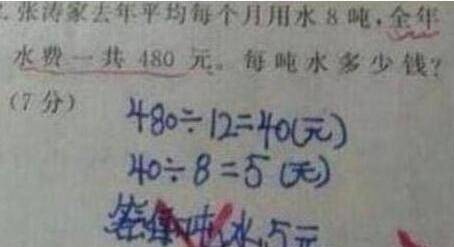 张涛家去年平均每个月用水8吨,全年
水费一共480元。每吨水多少钱?
(7分)
480÷12=40(元)
40÷8=5(元)
答:每吨水5元